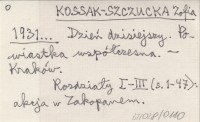 KOSSAK-SZCZUCKA Zofia
1931... Dzień dzisiejszy. Po-
wiastka współczesna. -
Kraków.
Rozdziały I-III (s. 1-47):
akcja w Zakopanem.